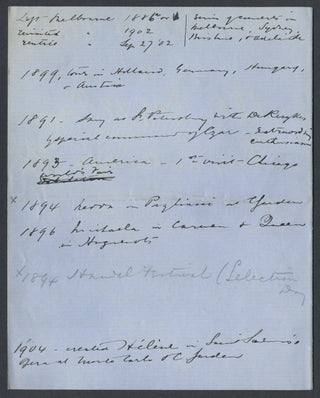 Left Melbourne 1886 or
revisited " 1902
Melbourne, Sydney,
Brisbane, & Adelaide
" Sep 27 '02
1899, tour in Holland, Germany, Hungary,
& Austria
1891 - Sang at St Petersburg with De Reszkes
special command of Czar - extraordin
enthusiasm
1893 - America - 1st visit - Chicago
World's Fair
x 1894 Nedda in Pagliacci at Garden
1896 Michaela in Carmen & Queen
in Huguenots
x 1894 Handel Festival (Selection
Day
1904 - created Hélène in Saint Saëns's
opera at Monte Carlo & C Garden